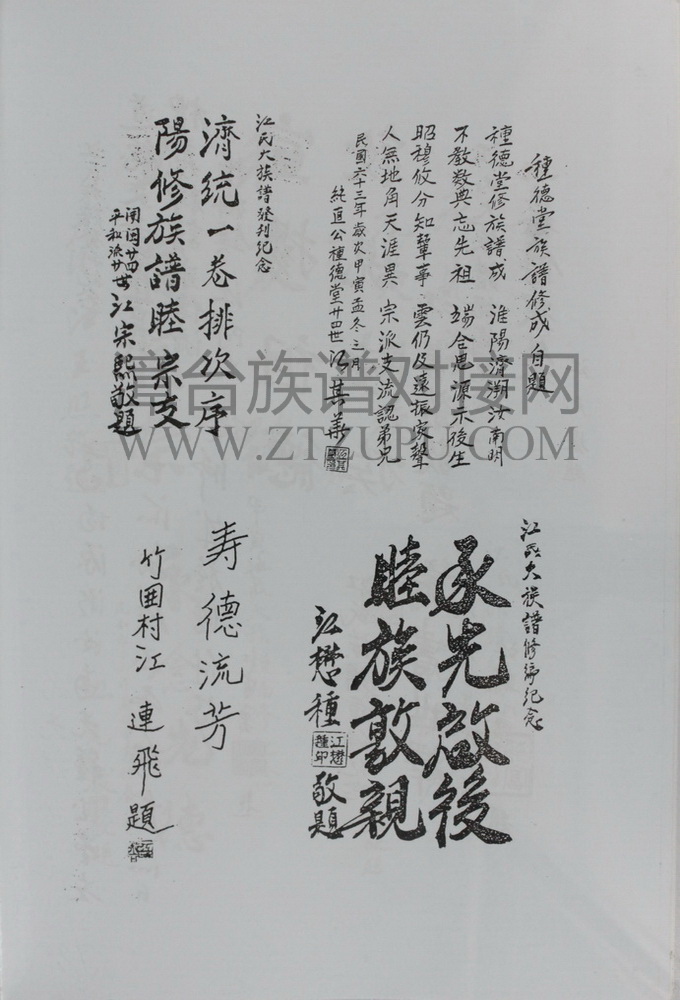 種德堂族譜修成自題
種德堂修族譜成 淮陽濟溯汝南明
不教數典忘先祖 端合思源示後生
昭穆攸分知輩事 雲仍及遠振家聲
人無地角天涯異 宗派支流認弟兄
民國六十三年歲次甲寅孟冬之月
純直公種德堂廿四世 江其華
江氏大族譜發刊紀念
濟統一卷排次序
陽修族譜睦宗支
開閩廿四世
平和派廿世
江宗熙敬題
江氏大族譜修譜紀念
承先啟後
睦族敦親
江懋種 江懋種印 敬題
寿德流芳
竹囲村江連飛題
臺台族谱对接网
WWW.ZTZUPU.COM